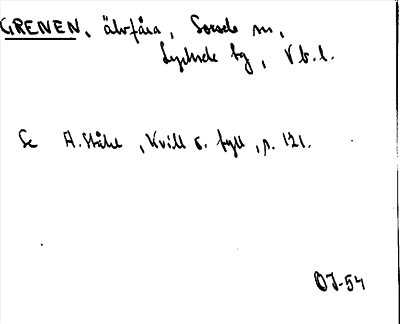 GRENEN, älvfåra, Sorsele sn,
Lycksele tg, Vb. l.
Se H. Ståhl, Kvill o. fyll, s. 121.
OJ-54